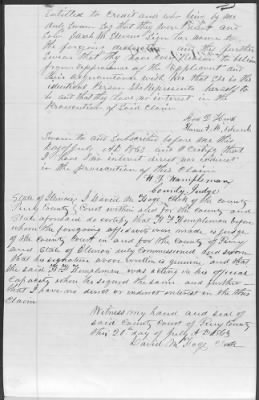 entitled to credit and who being by me
duly sworn say that they were present and
saw Sarah M. Clevens sign her name to
the foregoing declaration and they further
swear that they have every reason to believe
from appearance of the Applicant and
their acquaintance with her that she is the
identical Person She Represents herself to
be and that they have no interest in the
Prosecution of Said Claim
Sworn to and Subscribed before me this
day of July AD 1863 and I certify that
I have no interest direct nor indirect
in the prosecution of this claim
County Judge
State of Illinois, I David M. Hoge Clerk of the county
Perry County Court within and for the County and
State aforesaid do certify that H. F. Hampleman before
whom the foregoing affidavit was made is Judge
of the County Court in and for the County of Perry
and State of Illinois duly Commissioned and sworn
that his signature above written is genuine and that
the said H. F. Hampleman was acting in his official
Capacity when he signed the same and further
that I have no direct or indirect interest in the this
Claim
Witness my hand and seal of
said County Court of Perry County
this 20th day of July AD 1863
David M. Hoge Clerk